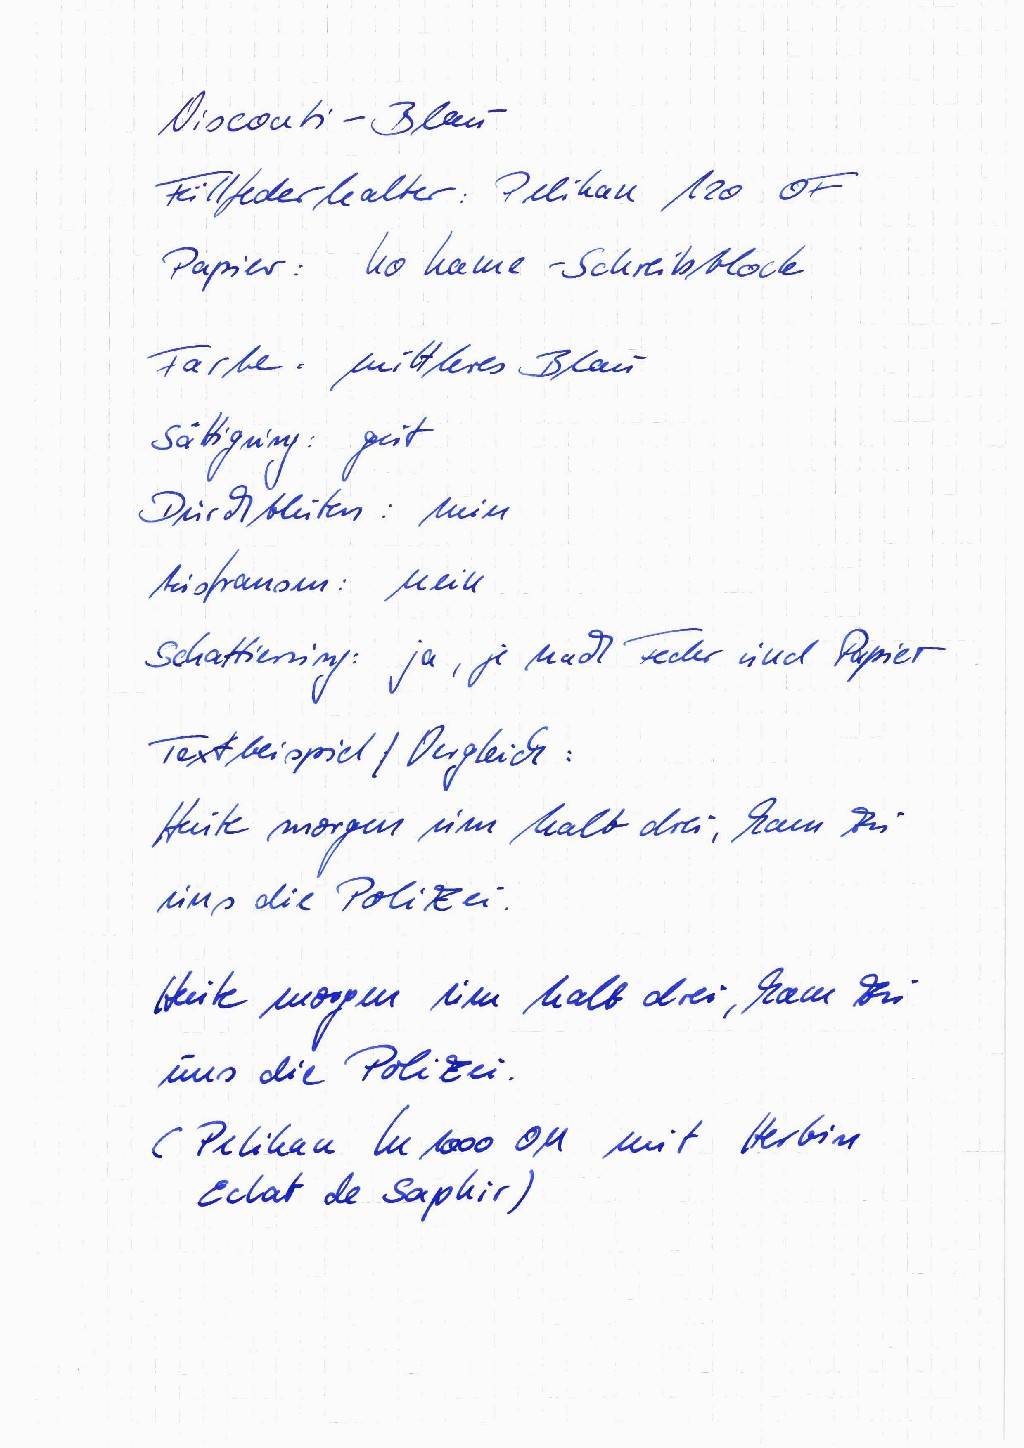 Visconti - Blau
Füllfederhalter: Pelikan 120 OF
Papier: no name - Schreibblock
Farbe: mittleres Blau
Sättigung: gut
Durchbluten: nein
Ausfransen: nein
Schattierung: ja, je nach Feder und Papier
Textbeispiel / Vergleich:
Heute morgen um halb drei, kam zu
uns die Polizei.
Heute morgen um halb drei, kam zu
uns die Polizei.
(Pelikan M 1000 OM mit Herbin
Eclat de Saphir)